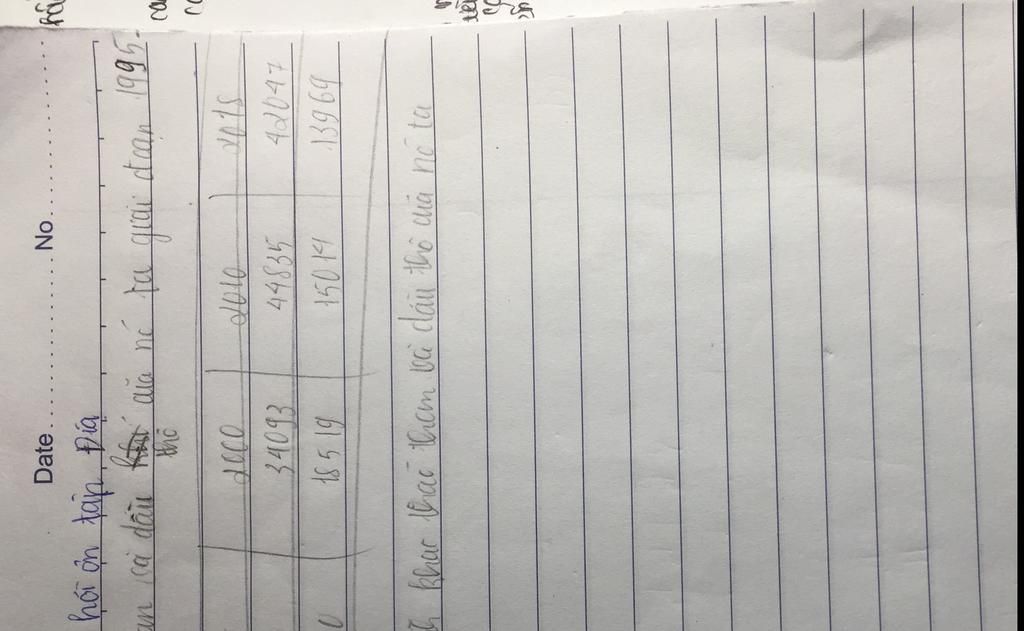 Date ............ No ............
hỏi ôn tập Địa
an và dầu thô của nó ta giai đoạn 1995-
2000 2010 2015
34093 44835 42047
18519 15014 13969
khai thác than và dầu thô của nó ta